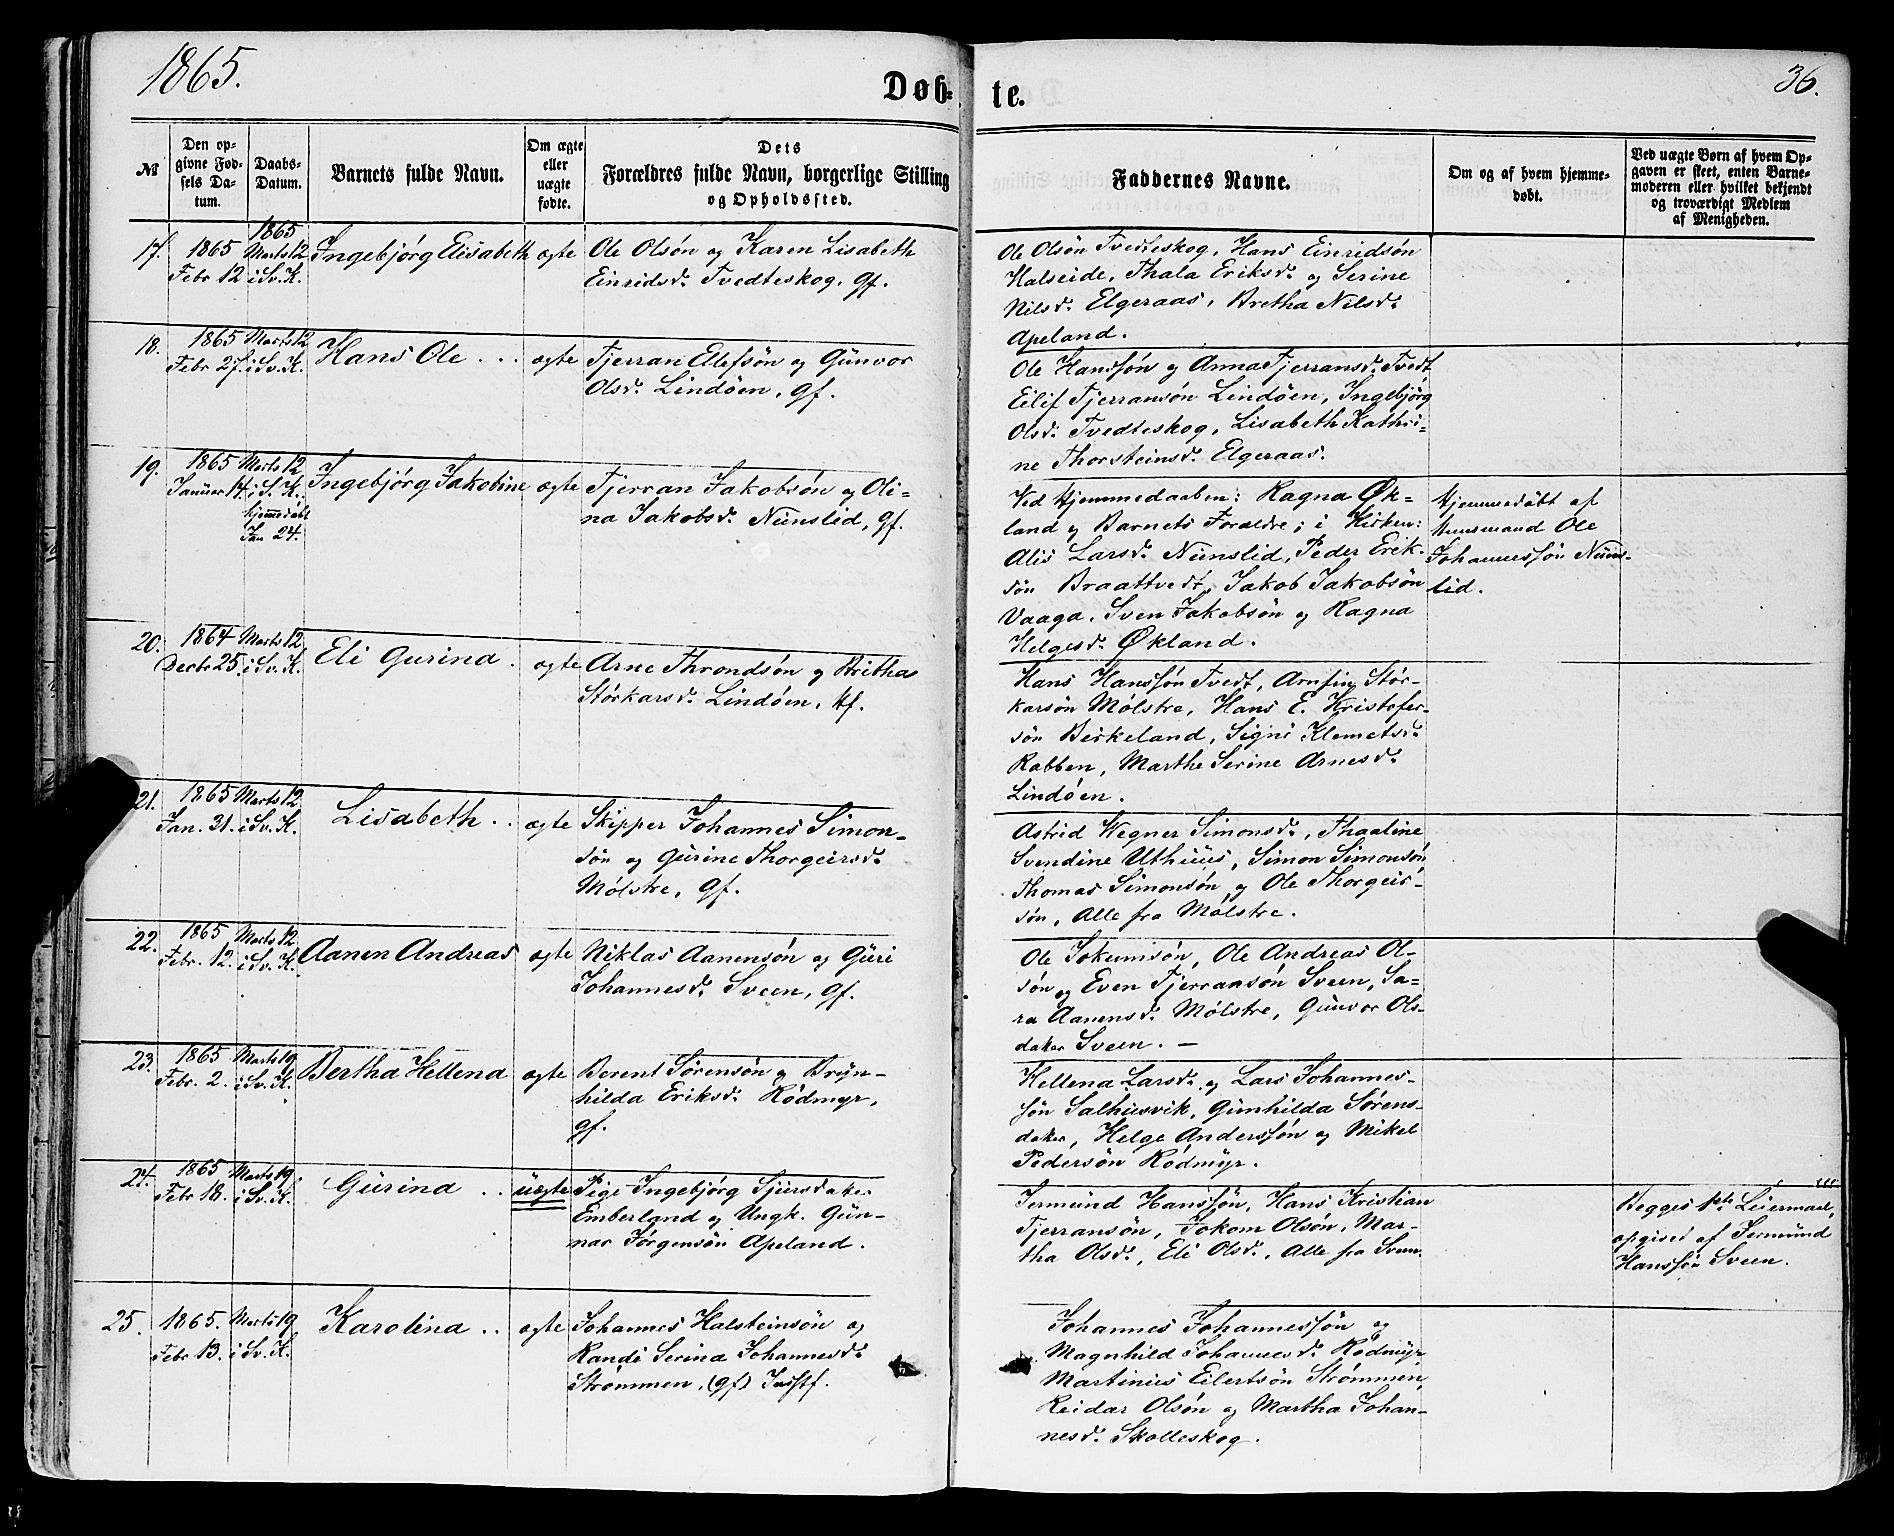 1865.
Døb=
te.
36.
№
Den op-
givne Fød-
sels Da-
tum.
Daabs-
Datum.
Barnets fulde Navn.
Om ægte
eller
uægte
fødte.
Dets
Forældres fulde Navn, borgerlige Stilling
og Opholdssted.
Faddernes Navne.
Om og af hvem hjemme-
døbt.
Ved uægte Børn af hvem Op-
gaven er skeet, enten Barne-
moderen eller hvilket bekjendt
og troværdigt Medlem
af Menigheden.
17. 1865 Febr 12
1865 Marts 12 i Sv. K.
Ingebjörg Elisabeth
ægte
Ole Olsön og Karen Lisabeth
Einridsd. Tvedteskog, Gf.
Ole Olsön Tvedteskog, Hans Einridsön
Halseide, Thala Eriksd. og Serine
Nilsd. Elgeraas, Bretha Nilsd.
Apeland.
18. 1865 Febr 27.
Marts 12 i Sv. K.
Hans Ole ...
ægte
Tjerran Elefsön og Günvor
Olsd. Lindöen, Gf.
Ole Hanssön og Anna Tjerransd. Tvedt
Eilif Tjerransön Lindöen, Ingebjörg
Olsd. Tvedteskog, Lisabeth Kathri=
ne Thorsteinsd. Elgeraas.
19. 1865 Januar 14.
Marts 12 i S. K.
hjemmedöbt
Jan 24.
Ingebjörg Jakobine
ægte
Tjerran Jakobsön og Oli-
na Jakobsd. Nünslid, Gf.
Ved Hjemmedaaben: Ragna Øk-
land og Barnets Forældre; i Kirken:
Alis Larsd. Nünslid, Peder Erik-
sön Braattvedt, Jakob Jakobsön
Vaaga, Sven Jakobsön og Ragna
Helgesd. Økland.
Hjemmedöbt af
Huusmand Ole
Johannessön Nüns-
lid.
20. 1864 Decbr 25.
Marts 12 i Sv. K.
Eli Gurina .
ægte
Arne Throndsön og Britha
Störkarsd. Lindöen, Hf.
Hans Hanssön Tvedt, Arnfin Stör-
karsön Mölstre, Hans E. Kristofer-
sön Birkeland, Signi Klemetsd.
Rabben, Marthe Serine Arnesd.
Lindöen.
21. 1865 Jan. 31.
Marts 12 i Sv. K.
Lisabeth . .
ægte
Skipper Johannes Simon-
sön og Gürine Thorgeirsd.
Mölstre, Gf.
Astrid Wegner Simonsd., Thaaline
Svendine Uthüüs, Simon Simonsön
Thomas Simonsön og Ole Thorgeir-
sön, Alle fra Mölstre.
22. 1865 Febr. 12.
Marts 12 i Sv. K.
Aanen Andreas
ægte
Niklas Aanensön og Güri
Johannesd. Sveen, Gf.
Ole Jokumsön, Ole Andreas Ol-
sön og Even Tjerransön Sveen, Sa-
ra Aanensd. Mölstre, Günvor Ols-
daker Sveen. —
23. 1865 Febr. 2.
Marts 19 i Sv. K.
Bertha Hellena
ægte
Berent Sörensön og Bryn-
hilda Eriksd. Rödmyr,
Gf.
Hellena Larsd. og Lars Johannes-
sön Salhüsvik, Günhilda Sörens-
daker, Helge Anderssön og Mikel
Pedersön Rödmyr.
24. 1865 Febr 18.
Marts 19 i Sv. K.
Gürina . .
üægte
Pige Ingebjörg Sjursdaker
Emberland og Ungk. Gün-
nar Jörgensön Apeland.
Jermünd Hanssön, Hans Kristian
Tjerransön, Jokom Olsön, Mar-
tha Olsd., Eli Olsd., Alle fra Sveen.
Begges 1ste Leiermaal,
opgivet af Jermünd
Hanssön Sveen.
25. 1865. Febr 13.
Marts 19 i Sv. K.
Karolina . .
ægte
Johannes Halsteinsön og
Randi Serina Johannesd.
Strömmen, (Gf) Indstf.
Johannes Johannessön og
Magnhild Johannesd. Rödmyr,
Martinius Eilertsön Strömmen,
Reidar Olsön og Martha Johan-
nesd. Skolleskog.